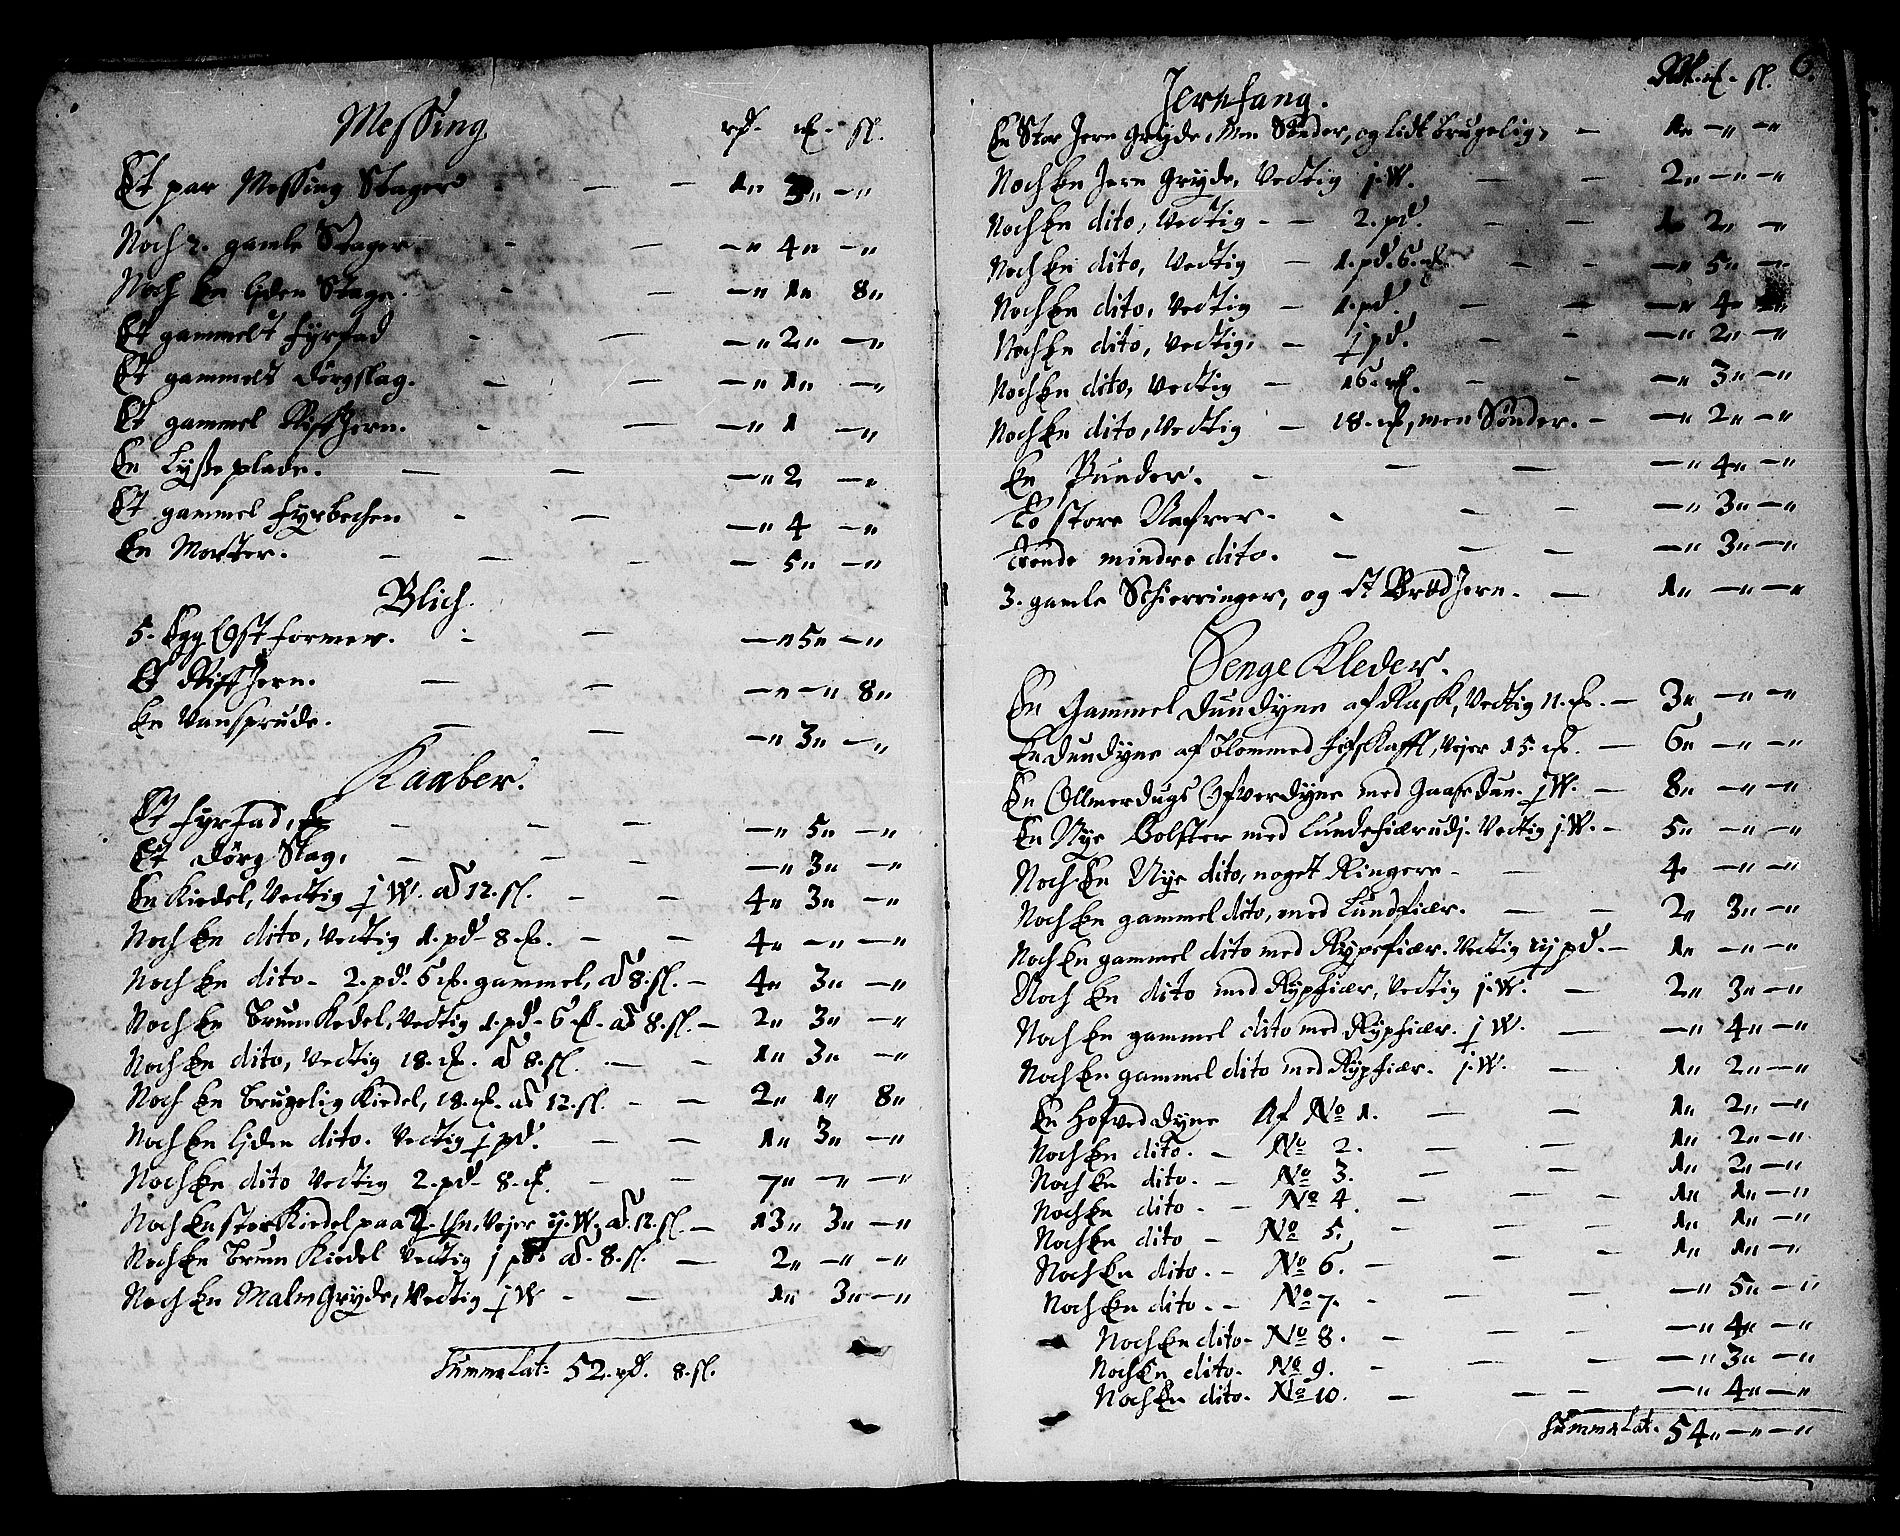 Messing rd. mk. sl.
Et par Messing Stager — — 1„ 3„ —„
Noch 2. gamle Stager. - — —„ 4„ —„
Noch En liden Stage. - — —„ 1„ 8„
Et gammelt Fyrfad - — —„ 2„ —„
Et gammels dörgslag. — — —„ 1„ —„
Et gammel Riffjern. - — —„ 1 —„
En Lysseplade. — — —„ 2 —„
Et gammel Fyrbechen - — —„ 4 —„
En Morter. — — - — 5„ —„
Blich.
5. Egg Ost former. - — —„ 5„ —„
Et Riffjern. — — —„ —„ 8„
En Vansprude. — — —„ 3„ —„
Kaaber.
Et Fyrfad, - — — —„ 5„ —„
Et dörg Slag, — — — —„ 3„ —„
En Kiedel, Vechtig j W. ad 12. sl. — — 4„ 3„ —„
Noch En dito, Vechtig 1. pd - 8 mk. — — 4„ —„ —„
Noch En dito - 2. pd. 6 mk. gammel, ad 8. sl. — 4„ 3„ —„
Noch En Brun Kedel, Vechtig 1. pd - 6 mk - ad 8. sl. — 2„ 3„ —„
Noch En dito, Vechtig 18. mk. ad 8. sl. — - 1„ 3„ —„
Noch En Brugelig Kiedel, 18. mk. ad 12. sl. - — 2„ 1„ 8„
Noch En liden dito. Vechtig j pd. — — 1„ 3„ —„
Noch En dito Vechtig 2. pd - 8. mk. - — 7„ —„ —„
Noch En stor Kiedel paa Vejer ij. W. ad. 12. sl. — 13„ 3„ —„
Noch En Brun Kiedel Vechtig j pd. ad - 8. sl. — 2„ —„ —„
Noch En Malm Gryde, Vechtig j W - — 1„ 3„ —„
Summa Lat: 52. rd. 8. sl.
6.
Jernfang. Rd. mk. sl.
En Stor Jern Gryde, Men Sönder, og lidt Brugelig, — 1„ —„ —„
Noch En Jern Gryde, Vechtig j. W. — — 2„ —„ —„
Noch En dito, Vechtig - — 2. pd. - — 1„ 2„ —„
Noch En dito, Vechtig — 1. pd. 6. mk. - - —„ 5„ —„
Noch En dito, Vechtig — 1. pd. — — —„ 4„
Noch En dito, Vechtig, — j pd. — — —„ 2„ —„
Noch En dito, Vechtig — 16. mk. - — —„ 3„ —„
Noch En dito, Vechtig — 18. mk, men Sönder. — —„ 2„ —„
En Bunder. - — — —„ 4„ —„
To store Nafrer. - — — —„ 3„ —„
Trende mindre dito. — — — —„ 3„ —„
3. gamle Schierringer, og et Brödjern. — 1„ —„ —„
Senge Kleder.
En Gammel Dundyne af Rask, Vechtig 11. mk. — 3„ —„ —„
En Dundyne af Blommed Vejer 15. mk. — 6„ —„ —„
En Ollmerdugs Ofverdyne med Gaase dun. j W. — 8„ —„ —„
En Nye Bolster med Lundefiær udj. Vechtig j. W. — 5„ —„ —„
Noch En Nye dito, noget Ringere - — 4„ —„ —„
Noch En gammel dito, med Lundfiær. — — 2„ 3„ —„
Noch En gammel dito med Rypefiær. Vechtig iij pd. — 1„ —„ —„
Noch En dito med Rypfiær, Vechtig j. W. — 2„ 3„ —„
Noch En gammel dito med Rypfiær. j W. — —„ 4„ —„
Noch En gammel dito med Rypfiær. j. W. — 1„ 2„ —„
En Hofved dyne Af No 1. — — 1„ 2„ —„
Noch En dito. — No 2. — — 1„ 2„ —„
Noch En dito. — No 3. — — 1„ 2„ —„
Noch En dito - No 4. — — 1„ 1„ —„
Noch En dito — No 5. — — 1„ 1„ —„
Noch En dito. — No 6. — — — 1„ 1„ —„
Noch En dito. — No 7. - — — —„ 5„ —„
Noch En dito - No 8. — — — —„ 4„ —„
Noch En dito. No 9. - — — —„ 3„ —„
Noch En dito. No 10. — — — —„ 4„ —„
Summa Lat. 54„ —„ —„